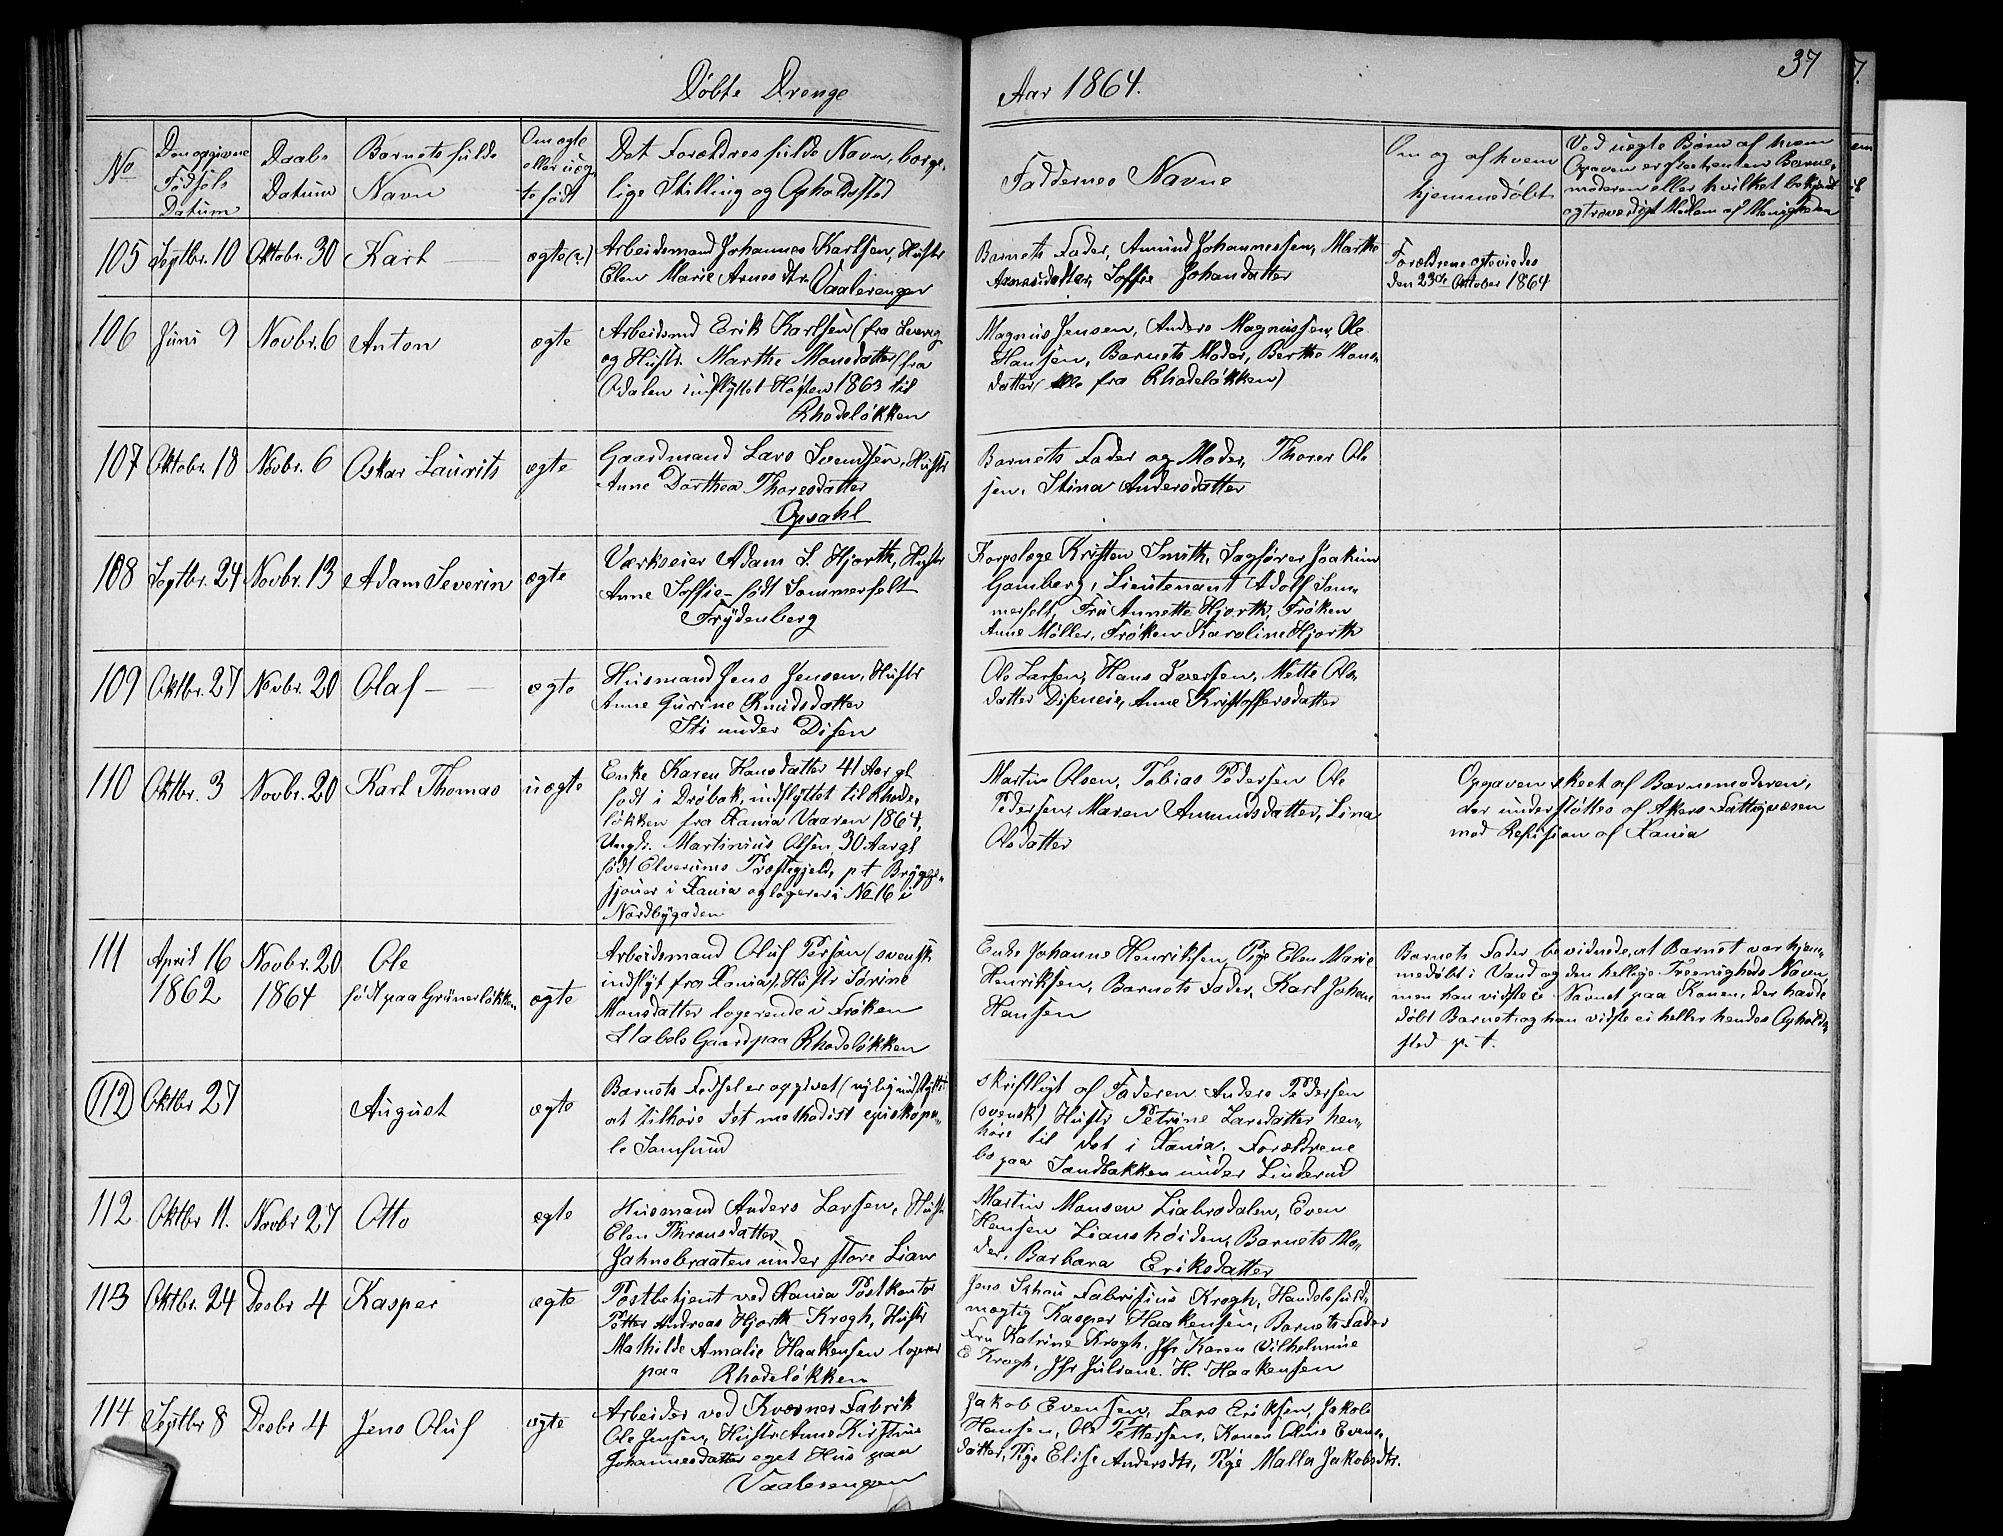 Døbte Drenge
Aar 1864.
37
No
Den opgivne
Fødsels
Datum
Daabs
Datum
Barnets fulde
Navn
Om ægte
eller uæg-
te født
Det Forældres fulde Navn, borger-
lige Stilling og Opholdssted
Faddernes Navne
Om og af hvem
hjemmedøbt
Ved uægte Børn af hvem
Opgaven er skeet enten Barne-
moderen eller hvilket bekjendt
og troværdigt Medlem af Menigheden
105 Septbr. 10 Oktobr. 30 Karl ægte (?)
Arbeidsmand Johannes Karlsen, Hustr
Elen Marie Arnesdtr. Vaalerengen
Barnets Fader, Amund Johannessen, Marthe
Arnesdatter, Soffie Johansdatter
Forældrene egtevviedes
den 23de Oktober 1864
106 Juni 9 Novbr. 6 Anton ægte
Arbeidsmd Erik Karlsen (fra Sverig
og Hustr. Marthe Monsdatter (fra
Odalen indflyttet Høsten 1863 til
Rhodeløkken
Magnus Jensen, Anders Magnussen, Ole
Hansen, Barnets Moder, Berthe Mons-
datter (Alle fra Rhodeløkken)
107 Oktobr. 18 Novbr. 6 Oskar Laurits ægte
Gaardmand Lars Svendsen, Hustr
Anne Dorthea Thoresdatter
Opsahl
Barnets Fader og Moder, Thorer Ol-
sen, Stina Andersdatter
108 Septbr. 24 Novbr. 13 Adam Severin ægte
Værkseier Adam S. Hjorth, Hustr
Anne Soffie født Sommerfelt
Frydenberg
Korpslæge Kristen Smith, Sagfører Joakim
Gamberg, Lieutenant Adolf Som-
merfelt, Fru Annette Hjorth, Frøken
Anne Møller, Frøken Karoline Hjorth
109 Oktbr. 27 Novbr. 20 Olaf ægte
Husmand Jens Jensen, Hustr
Anne Gurine Knudsdatter
Sti under Disen
Ole Larsen, Hans Iversen, Mette Ols-
datter Diseneie, Anne Kristoffersdatter
110 Oktbr. 3 Novbr. 20 Karl Thomas uægte
Enke Karen Hansdatter 41 Aar gl
født i Drøbak, indflyttet til Rhode-
løkken fra Xania Vaaren 1864,
Ungk. Martinius Olsen 30 Aar gl
født Elverums Præstegjeld, pt Brygge-
sjouer i Xania og logerer i No 16 i
Nordbygaden
Martin Olsen, Tobias Pedersen Ole
Pedersen, Maren Amundsdatter, Lina
Olsdatter
Opgaven skeet af Barnemoderen,
der understøttes af Akers Fattigvæsen
mod Refusion af Xania
111 April 16
1862
Novbr. 20
1864
Ole
født paa Grünerløkken
ægte
Arbeidsmand Oluf Persen (svensk
indflyt fra Xania), Hustr Sørine
Monsdatter logerende i Frøken
Stabels Gaard paa Rhodeløkken
Enke Johanne Henriksen, Pige Elen Marie
Henriksen, Barnets Fader, Karl Johan
Hansen
Barnets Fader bevidnede, at Barnet var hjem-
medøbt i Vand og den hellige Treenigheds Navn,
men han vidste ei Navnet paa Konen, der havde
døbt Barnet, og han vidste ei heller hendes Opholds-
sted p. t.
112 Oktbr 27 August ægte
Barnets Fødsel er opgivet (nylig indflyttet
at tilhøre det methodist episkopa-
le Samfund
skriftligt af Faderen Anders Pedersen
(svensk) Hustr Petrine Larsdatter hen-
høre til det i Xania. Forældrene
bo paa Sandbakken under Linderud
112 Oktbr 11. Novbr 27 Otto ægte
Husmand Anders Larsen, Hustr
Elen Thronsdatter
Jahnsbraaten under store Lian
Martin Monsen Liabrodalen, Even
Hansen Lianshøiden, Barnets Mo-
der, Barbara Eriksdatter
113 Oktbr. 24 Decbr 4 Kasper ægte
Postbetjent ved Xania Postkontor
Petter Andreas Hjorth Krogh, Hustr
Mathilde Amalie Haakensen logerer
paa Rhodeløkken
Jens Schou Fabrisius Krogh, Handelsfuld-
mægtig Kasper Haakensen, Barnets Fader
Fru Katrine Krogh, Jfr Karen Vilhelmine
E Krogh, Jfr Juliane. H. Haakensen
114 Septbr 8 Decbr 4 Jens Oluf ægte
Arbeider ved Kværner Fabrik
Ole Jensen, Hustr. Anne Kirstine
Johannesdatter eget Hus paa
Vaalerengen
Jakob Evensen, Lars Eriksen, Jakob
Hansen, Ole Pettersen, Konen Oline Evens-
datter, Pige Elise Andersdtr, Pige Malla Jakobsdtr.